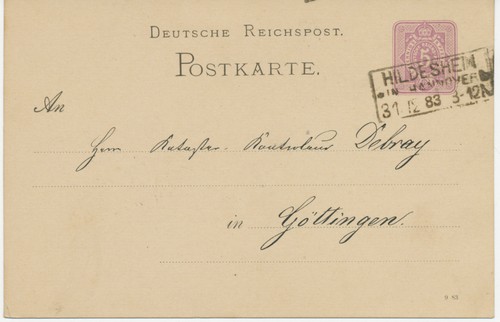 DEUTSCHE REICHSPOST.
POSTKARTE.
5
HILDESHEIM
IN HANNOVER
31 12 83 8-12N
An
Herrn Kataster-Kontroleur Debray
in Göttingen.